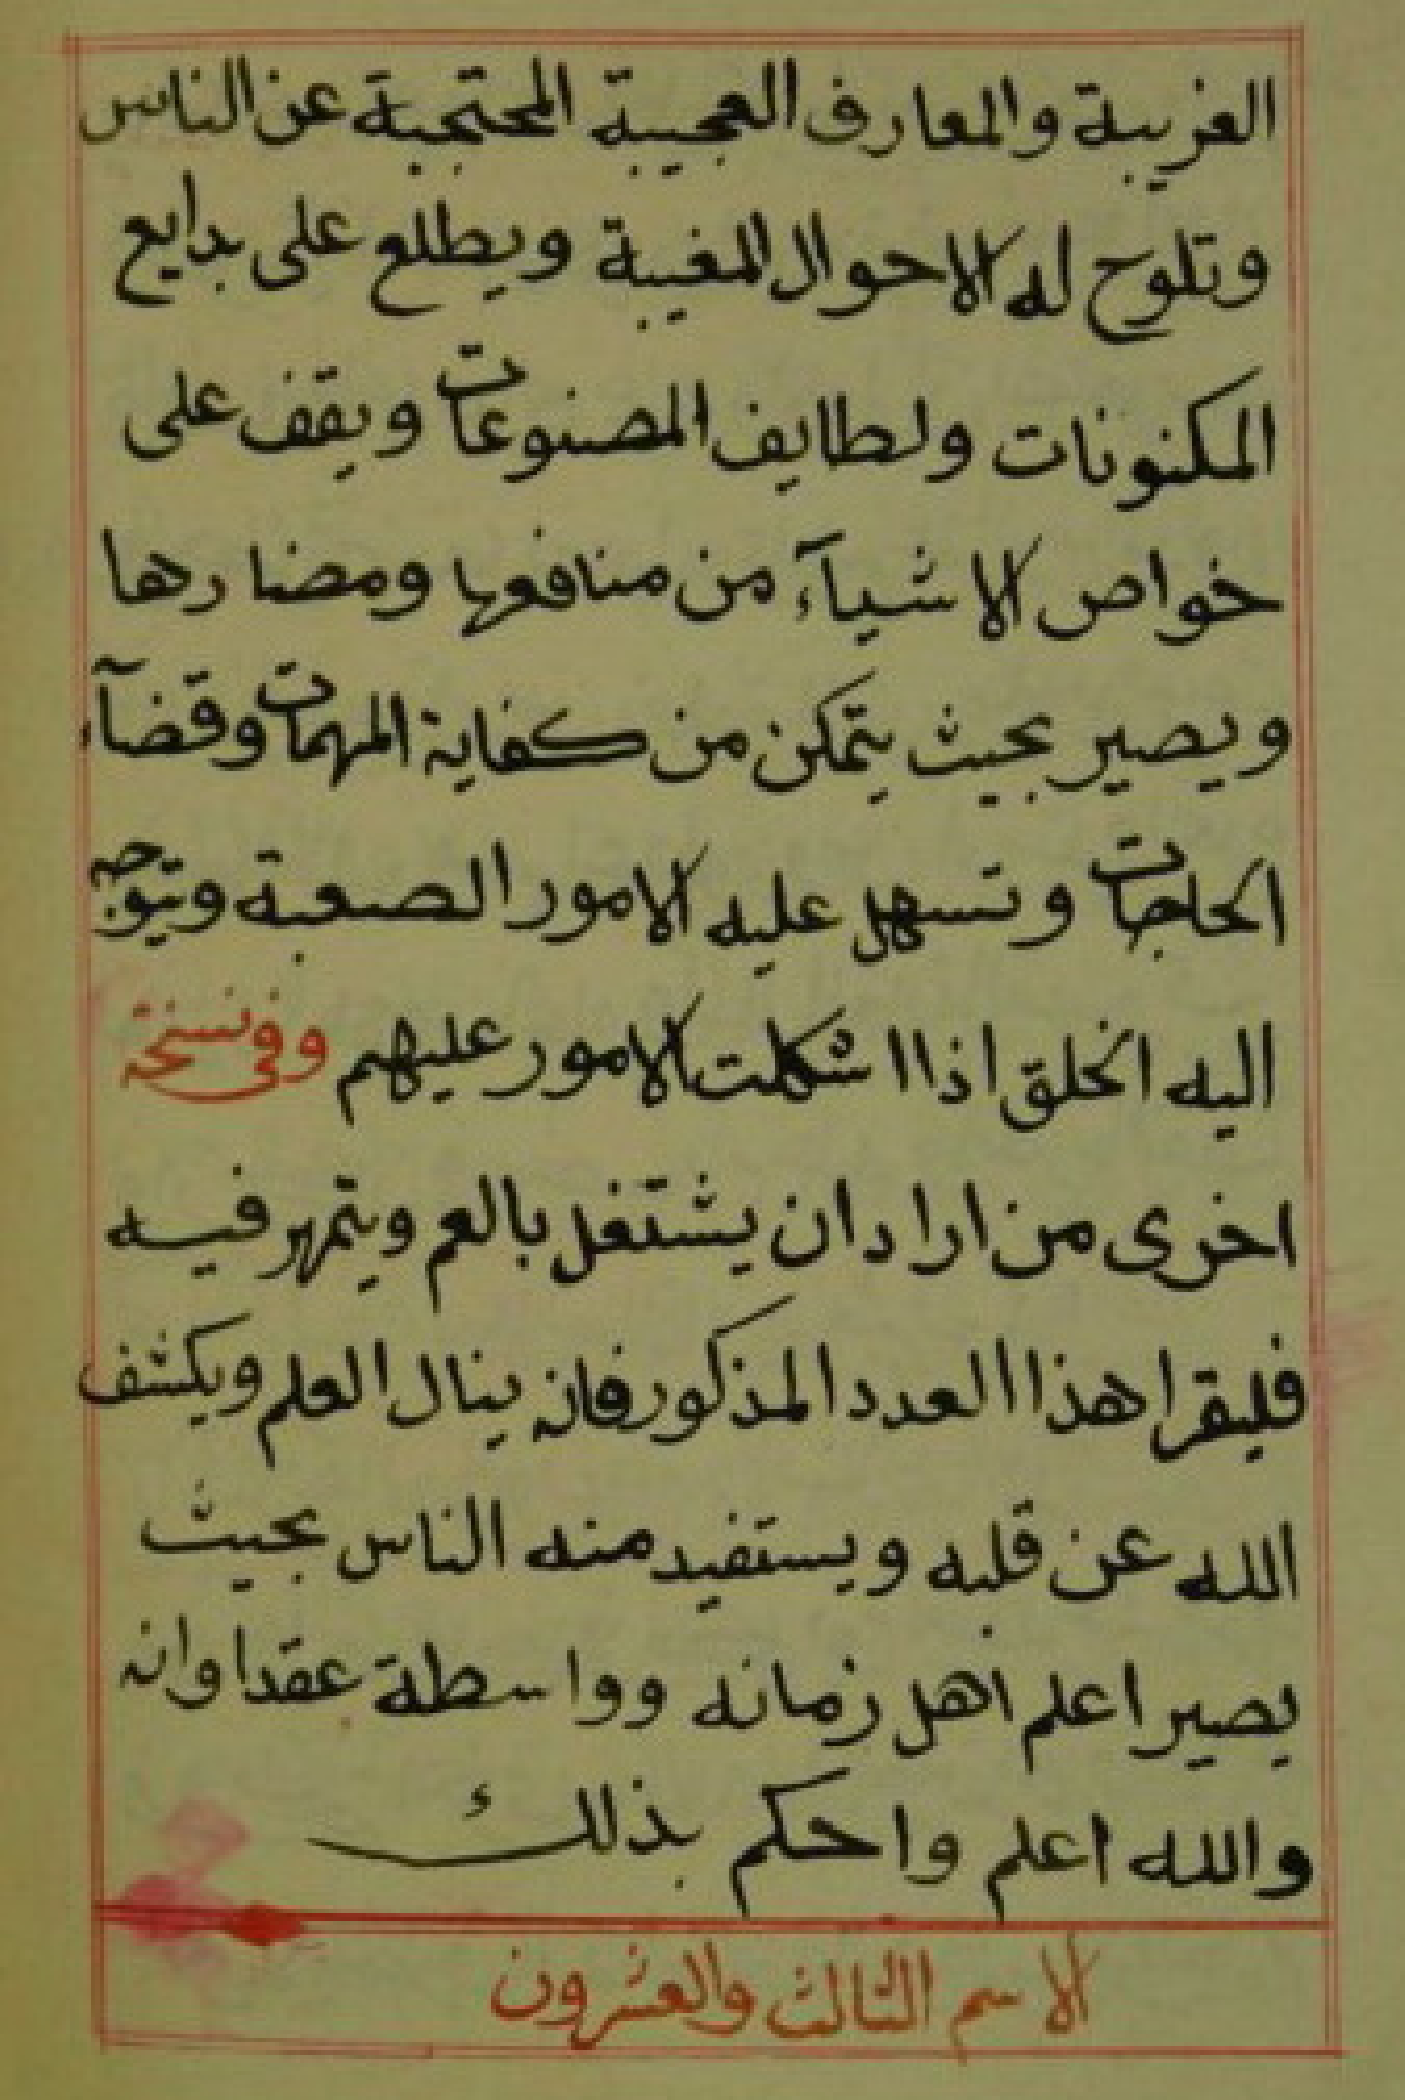 الغريبة والمعارف العجيبة المحتجبة عن الناس
وتلوح له الاحوال المغيبة ويطلع على بدايع
المكنونات ولطايف المصنوعات ويقف على
خواص الاشيآء من منافعها ومضارها
ويصير بحيث يتمكن من كفاية المهمات وقضآء
الحاجات وتسهل عليه الامور الصعبة ويتوجه
اليه الخلق اذا اشكلت الامور عليهم وفي نسخة
اخرى من اراد ان يشتغل بالعم ويتمهر فيه
فليقرا هذا العدد المذكور فانه ينال العلم ويكشف
الله عن قلبه ويستفيد منه الناس بحيث
يصير اعلم اهل زمانه وواسطة عقد اوانه
والله اعلم واحكم بذلك
الاسم الثالث والعشرون